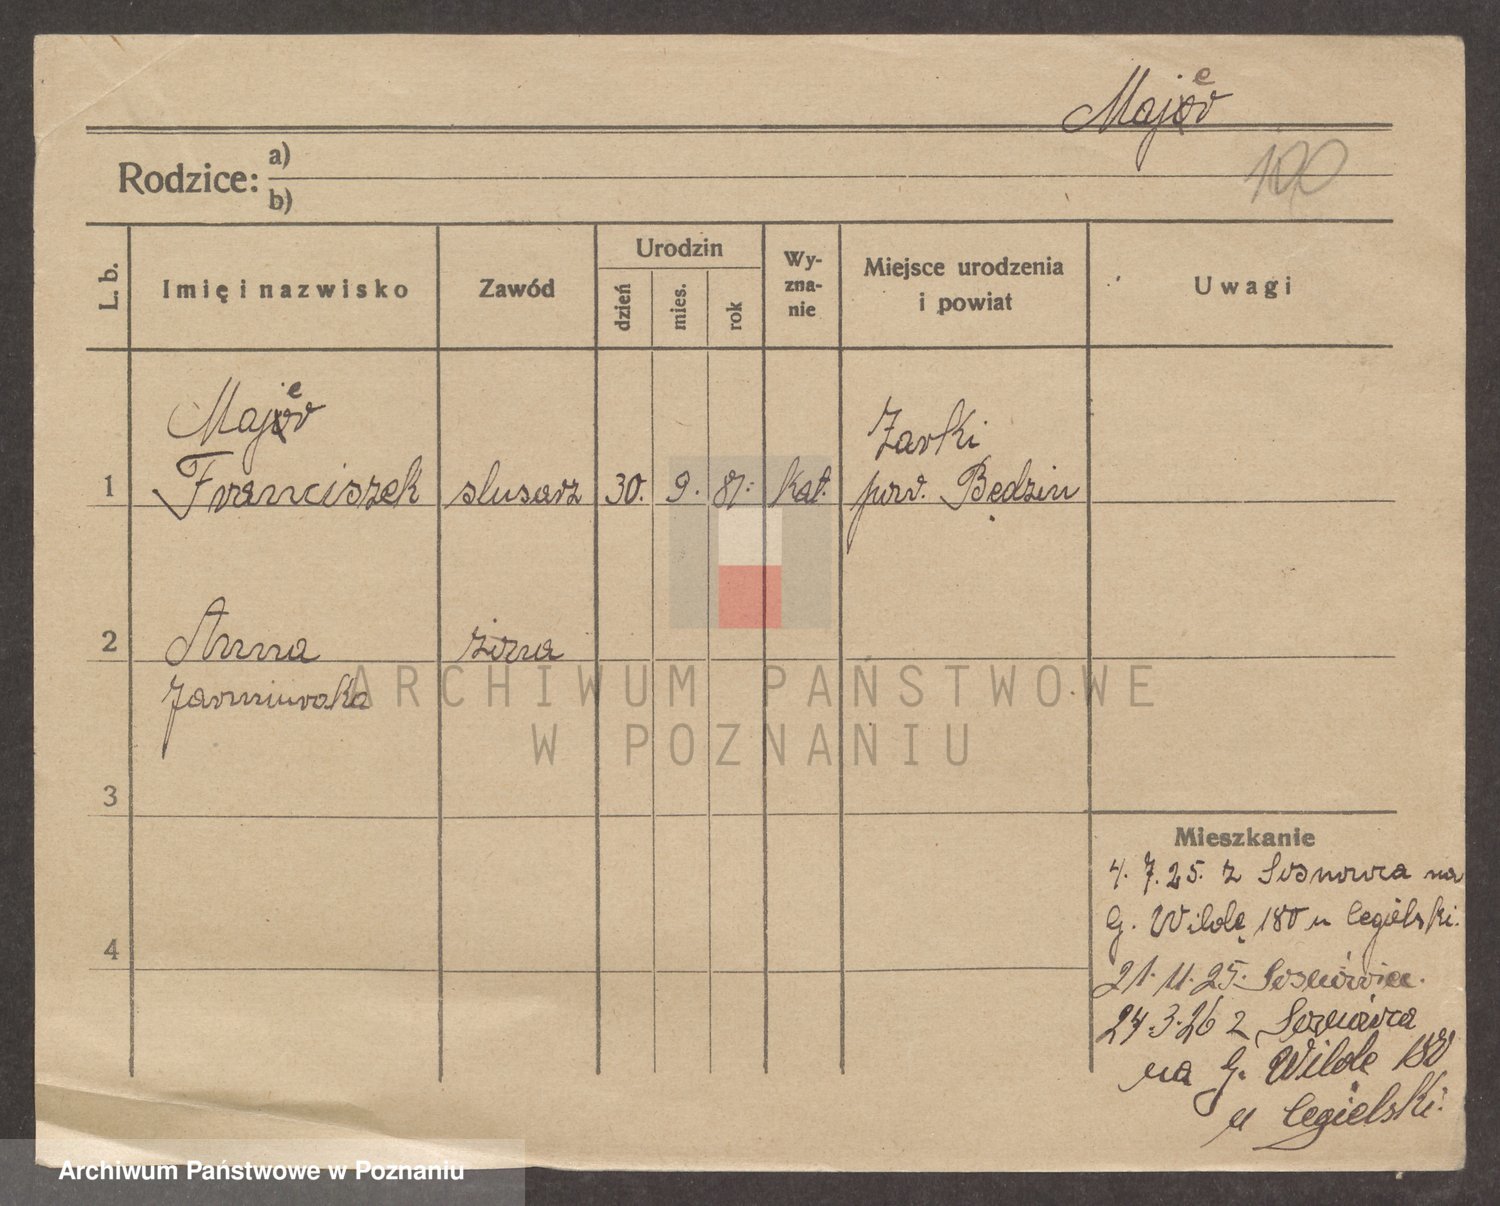 Majer
100
Rodzice: a)
b)
L. b.
Imię i nazwisko
Zawód
Urodzin
dzień
mies.
rok
Wy-
zna-
nie
Miejsce urodzenia
i powiat
Uwagi
Majer
Żarki
1 Franciszek slusarz 30. 9. 81. kat. pow. Będzin
2 Anna żona
Jarmiurska
3
4
Mieszkanie
4. 7. 25. z Sosnowca na
G. Wildę 180 u Cegielski.
21. 11. 25. Sosnówiec.
24. 3. 26 z Sosnówca
na G. Wilde 180
u Cegielski.
ARCHIWUM PAŃSTWOWE
W POZNANIU
Archiwum Państwowe w Poznaniu